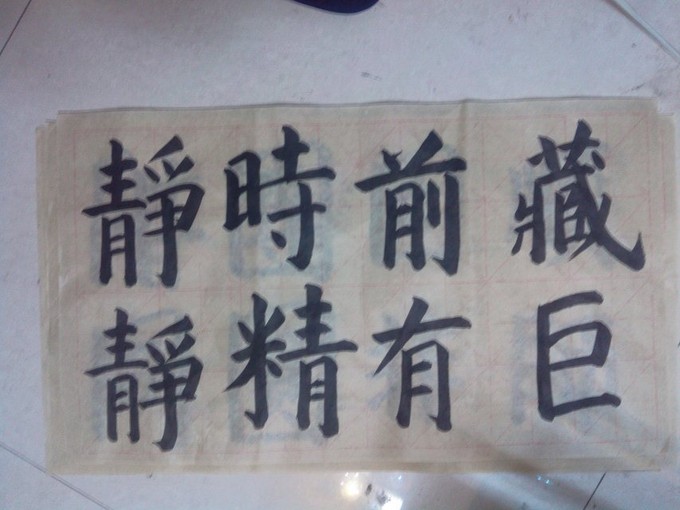 藏巨
前有
時精
靜靜